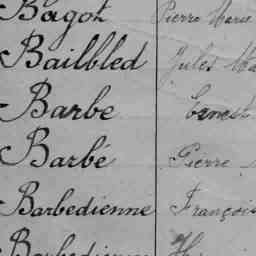 Bagot Pierre Marie
Bailbled Jules Ma
Barbe Ernest
Barbé Pierre
Barbedienne François
Barbedienne